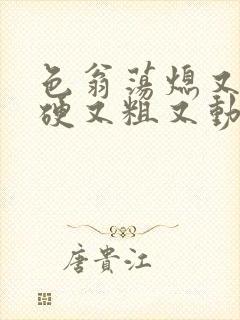 色翁荡熄又
硬又粗又動
唐貴江